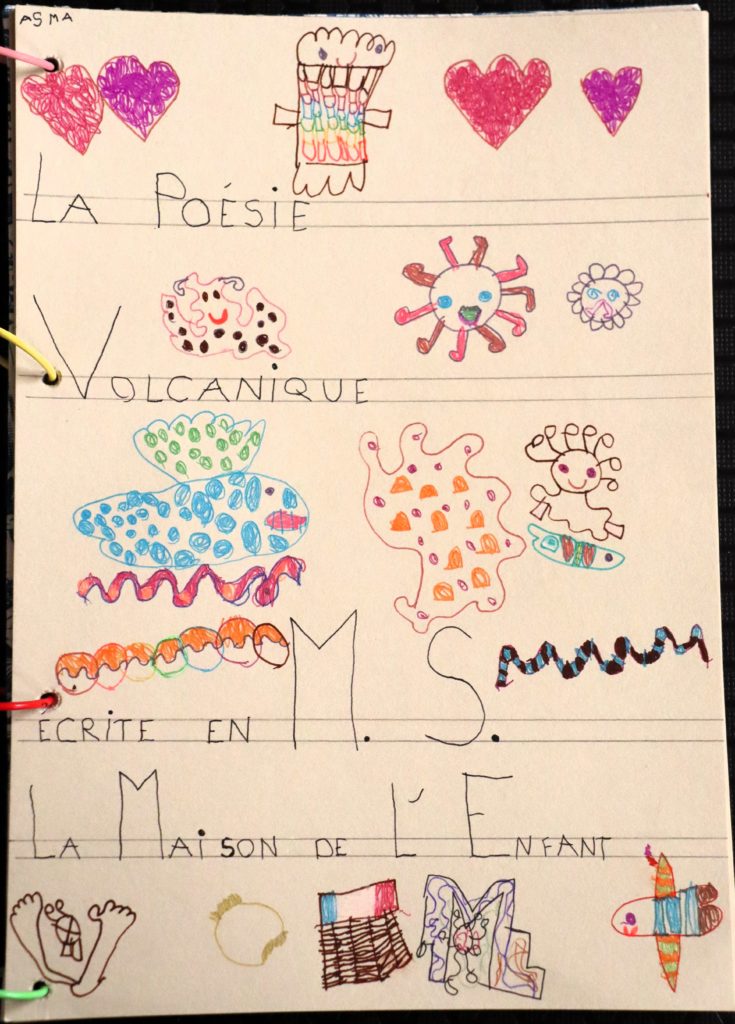 ASMA
LA POÉSIE
VOLCANIQUE
ÉCRITE EN M. S.
LA MAISON DE L'ENFANT